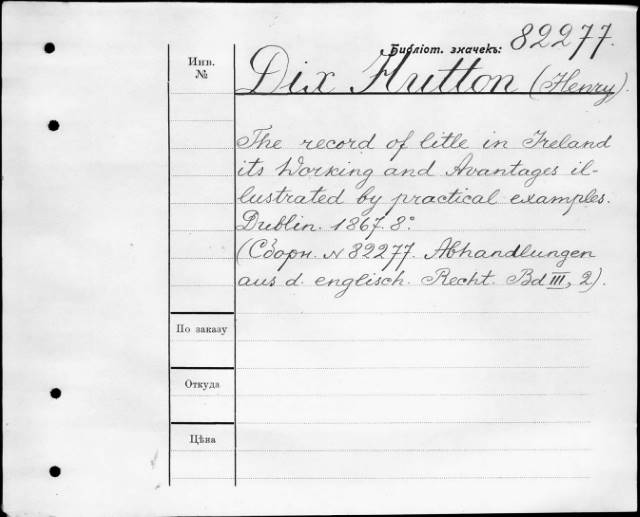 Библіот. значекъ: 82277.
Инв. №
Dix Hutton (Henry).
The record of litle in Ireland
its Working and Avantages il-
lustrated by practical examples.
Dublin. 1867. 8°.
(Сборн. № 82277. Abhandlungen
aus d. englisch. Recht. Bd III, 2).
По заказу
Откуда
Цѣна